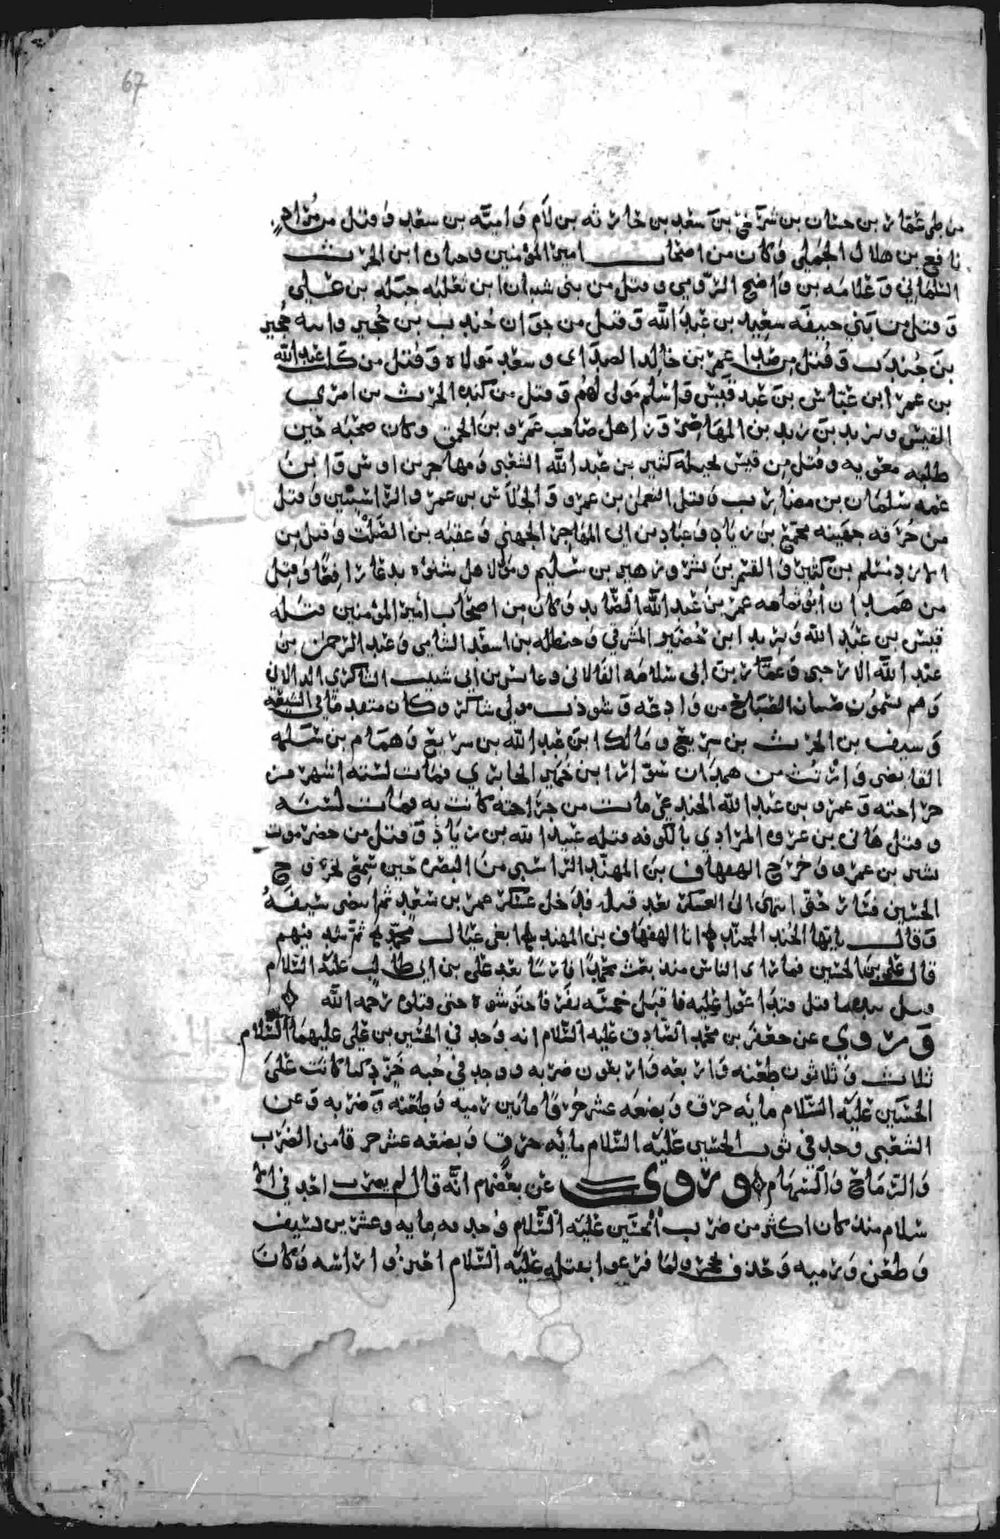 67
من طي عمار بن حسان بن شريح بن سعد بن حارثه بن لام وامية بن سعد وقتل من مراد
نافع بن هلال الجملي وكان من اصحاب امير المؤمنين وجناده ابن الحرث
السلماني وغلامه بن واضح الرومي وقتل من بني شيبان ابن ثعلبه جبله بن علي
وقتل من بني حنيفه سعيد بن عبد الله وقتل من جوان جندب بن حجير وابنه حجير
بن جندب وقتل من صدا عمر بن خالد الصداي وسعد مولاه وقتل من كلب عبد الله
بن عمر ابن عياش بن عبد قيس واسلم مولى لهم وقتل من كنده الحرث بن امرى
القيس ويزيد بن زيد بن المهاصر وزاهل صاحب عمرو بن الحمق وكان صحبه حين
طلبه معويه وقتل من قيس بجيله كثير بن عبد الله الشعبي ومهاجر بن اوس وابن
عمه سلمان بن مضارب وقتل النعمان بن عمرو والجلاس بن عمرو الراسبيين وقتل
من حرقه جهينه مجمع بن زياد وعباد بن ابي المهاجر الجهني وعقبه بن الصلت وقتل من
الازد مسلم بن كثير والقسم بن بشر وزهير بن سليم ومولا لاهل شنوه يدعا رافعا وقتل
من همدان ابو ثمامه عمر بن عبد الله الصايدي وكان من اصحاب امير المؤمنين قتله
قيس بن عبد الله ويزيد ابن حضير المشرقي وحنظله بن اسعد الشامي وعبد الرحمن بن
عبد الله الارحبي وعمار بن ابي سلامه الدالاني وعابس بن ابي شبيب الشاكري الدالاني
وهم يسمون فتيان الصباح من وادعه وشوذب مولى شاكر وكان متقدما في الشيعه
وسيف بن الحرث بن سريع ومالك ابن عبد الله بن سريع وهمام بن سلمه
القابضي وارتث من همدان سوار ابن حمير الجابري فمات لسته اشهر من
جراحته وعمرو بن عبد الله الجندعي مات من جراحته كانت به فمات لسنه
وقتل هاني بن عروه المرادي بالكوفه قتله عبيد الله بن زياد وقتل من حضرموت
بشر بن عمرو وخرج الهفهاف بن المهند الراسبي من البصره حين سمع بخروج
الحسين فسار حتى انتهى الى العسكر بعد قتله فدخل عسكر عمر بن سعد ثم انتضى سيفه
وقال يايها الجند المجند انا الهفهاف بن المهند ابغي عيال محمد ثم شد فيهم
قال علي بن الحسين فما راى الناس منذ بعث محمدا فارسا بعد علي بن ابي طالب عليه السلام
قتل بيده ما قتل فتداعوا عليه فاقبل خمسه نفر فاحتوشوه حتى قتلوه رحمه الله
وروي عن جعفر بن محمد الصادق عليه السلام انه وجد في الحسين بن علي عليهما السلام
ثلاث وثلاثون طعنه واربعه واربعون ضربه ووجد في جبه خز دكنا كانت على
الحسين عليه السلام مايه خرق وبضعه عشر خرقا مابين رميه وطعنه وضربه وعن
الشعبي وجد في ثوب الحسين عليه السلام مايه خرق وبضعه عشر خرقا من الضرب
والرماح والسهام وروي عن بعضهم انه قال لم يضرب احد في الا
سلام منذ كان اكثر من ضرب الحسين عليه السلام وجد به مايه وعشرين بسيف
وطعن ورميه وحذف حجر ولما فرغوا بقتله عليه السلام اخذوا راسه وكان